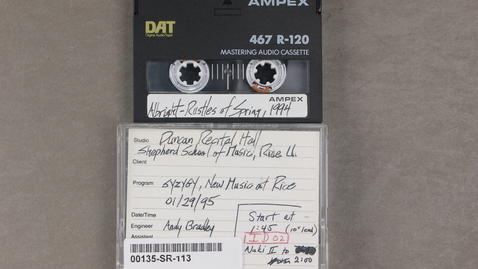 AMPEX
DAT
Digital Audio Tape
467 R-120
MASTERING AUDIO CASSETTE
AMPEX
Albright-Rustles of Spring, 1994
Studio Duncan Recital Hall
Shepherd School of Music, Rice U.
Client
Program SYZYGY, New Music at Rice
01/29/95
Date/Time
Engineer Andy Bradley
Assistant
Start at
1:45
ID 02
Nuki II to
2:00
00135-SR-113